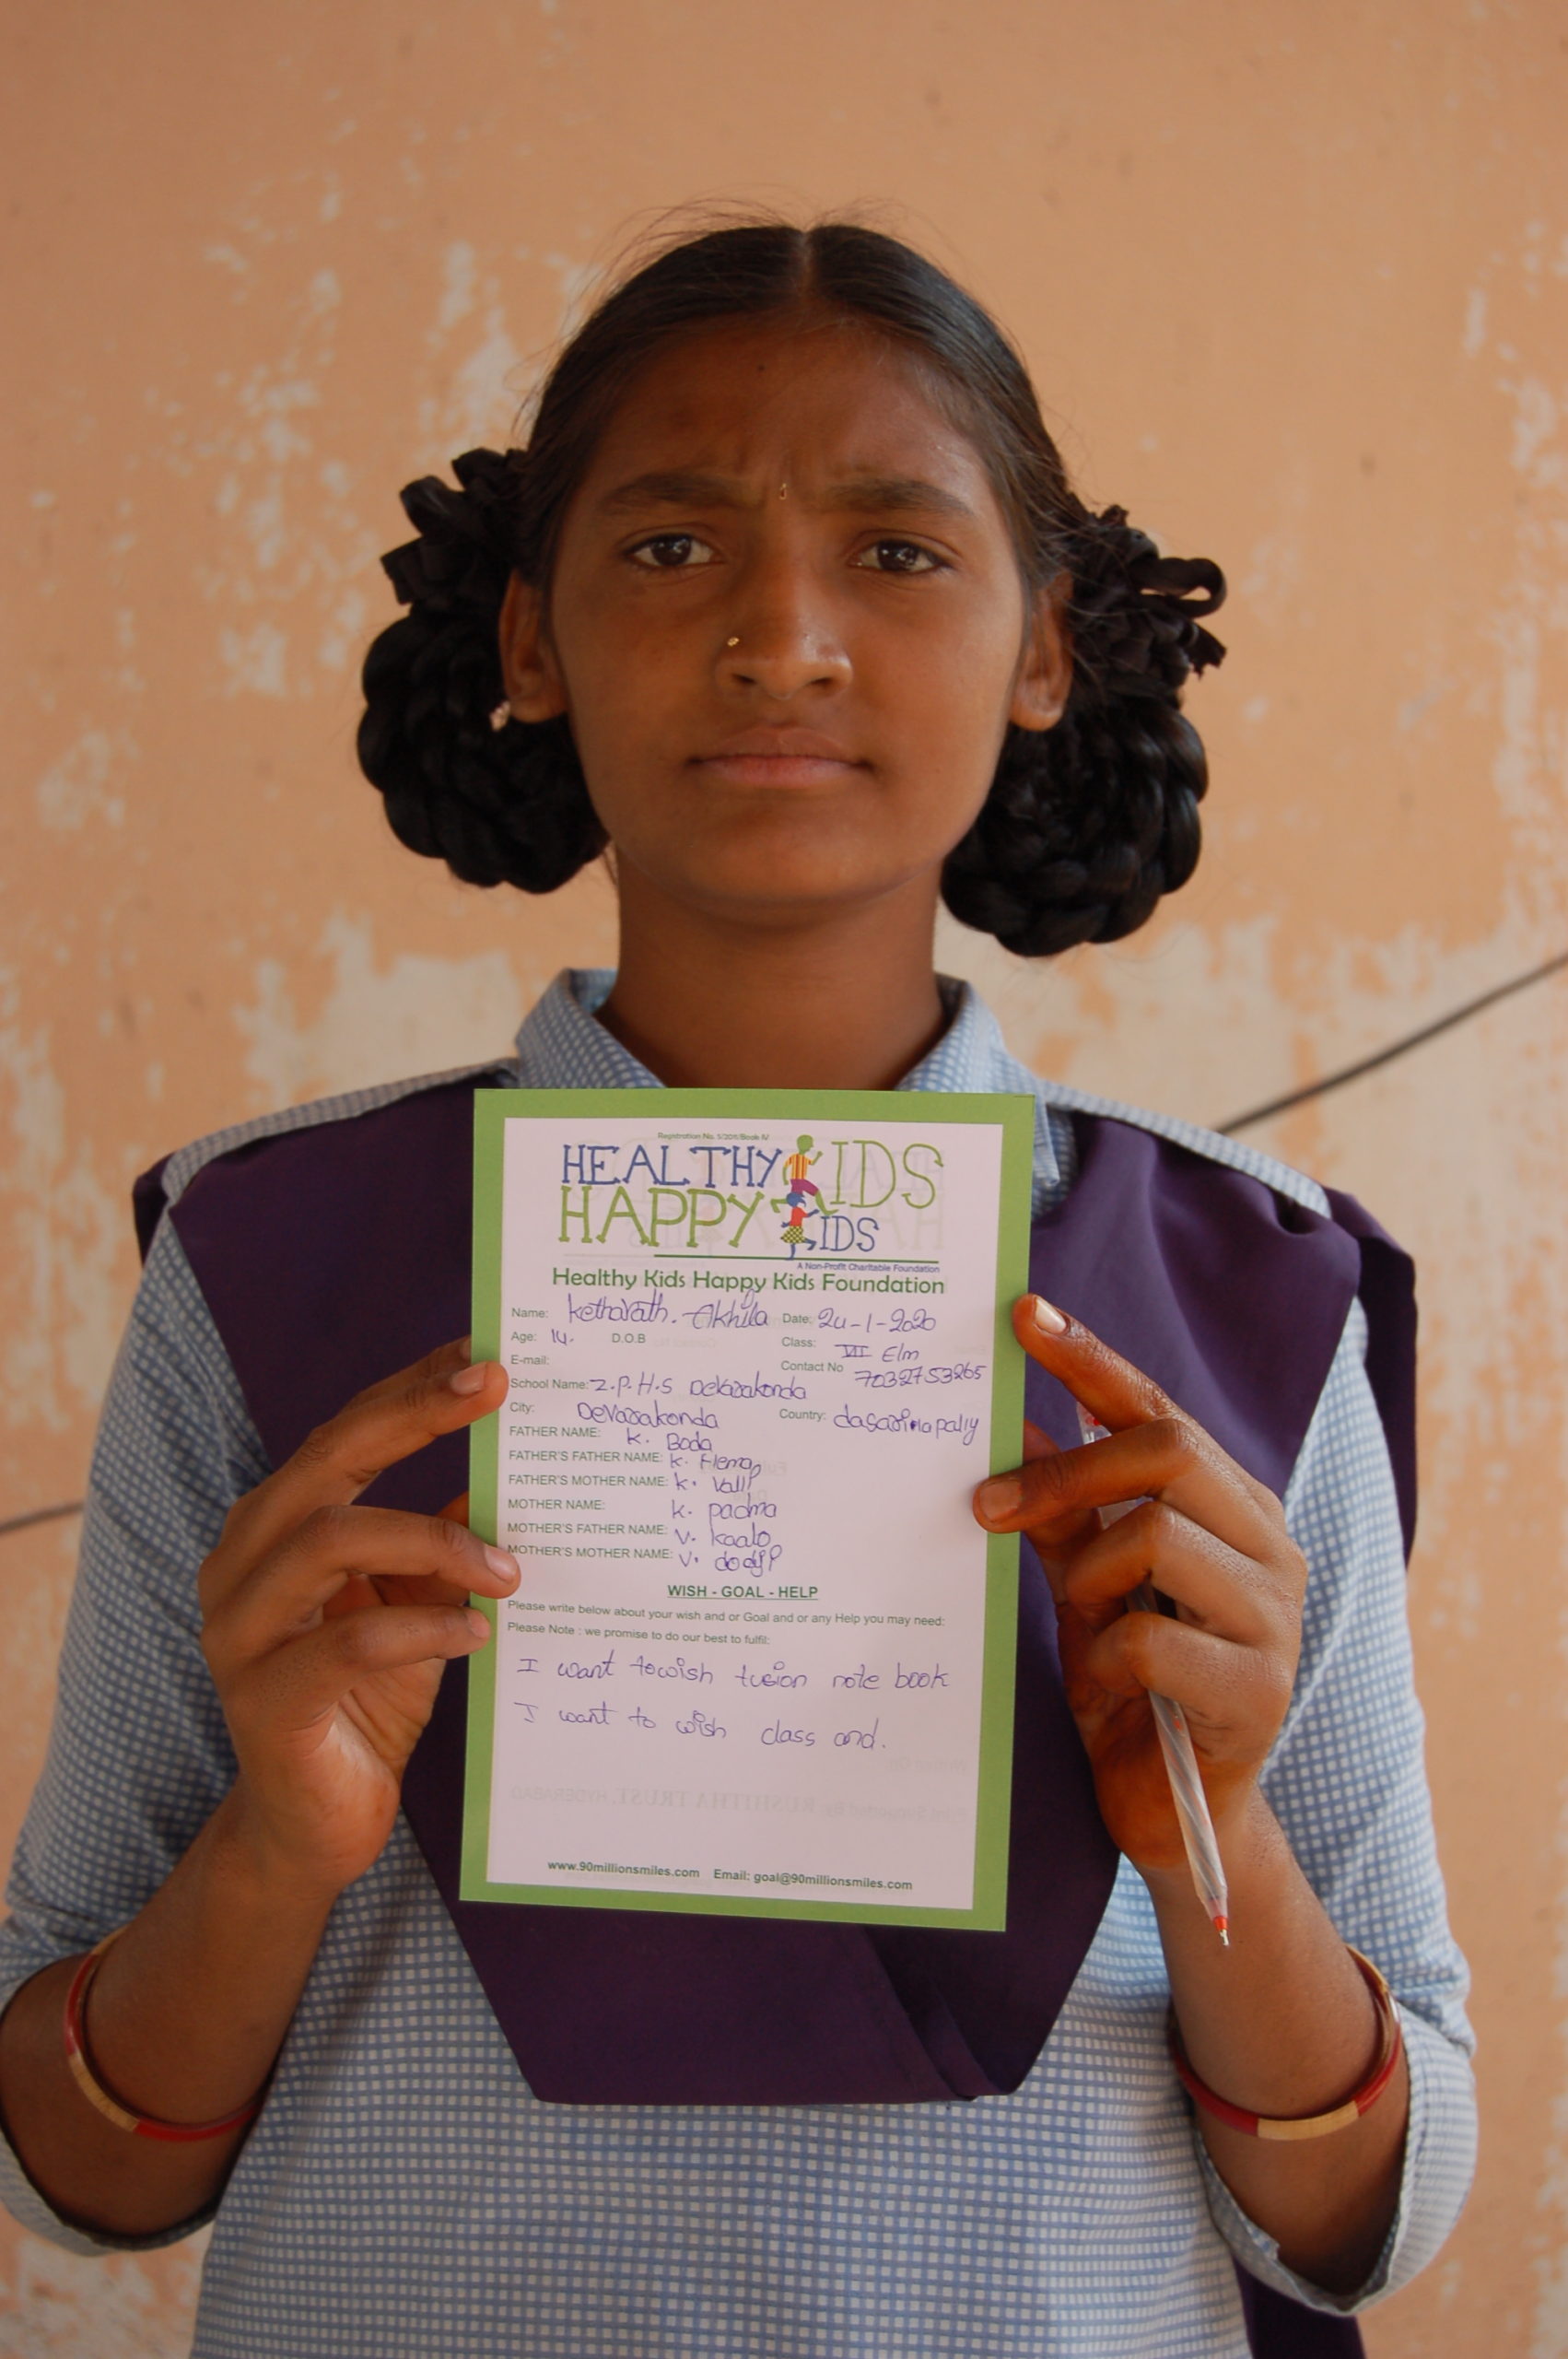 Registration No. 1/2011/Book IV
HEALTHY KIDS
HAPPY KIDS
A Non-Profit Charitable Foundation
Healthy Kids Happy Kids Foundation
Name: Ketharath. Akhila Date: 24-1-2020
Age: 14. D.O.B Class: VII Elm
E-mail: Contact No 7032753265
School Name: Z.P.H.S Devarakonda
City: Devarakonda Country: dasarinapally
FATHER NAME: K. Boda
FATHER'S FATHER NAME: K.
FATHER'S MOTHER NAME: K. Valli
MOTHER NAME: K. padma
MOTHER'S FATHER NAME: V. kaalo
MOTHER'S MOTHER NAME: V.
WISH - GOAL - HELP
Please write below about your wish and or Goal and or any Help you may need:
Please Note : we promise to do our best to fulfil:
I want towish tusion note book
I want to wish class and.
www.90millionsmiles.com Email: goal@90millionsmiles.com